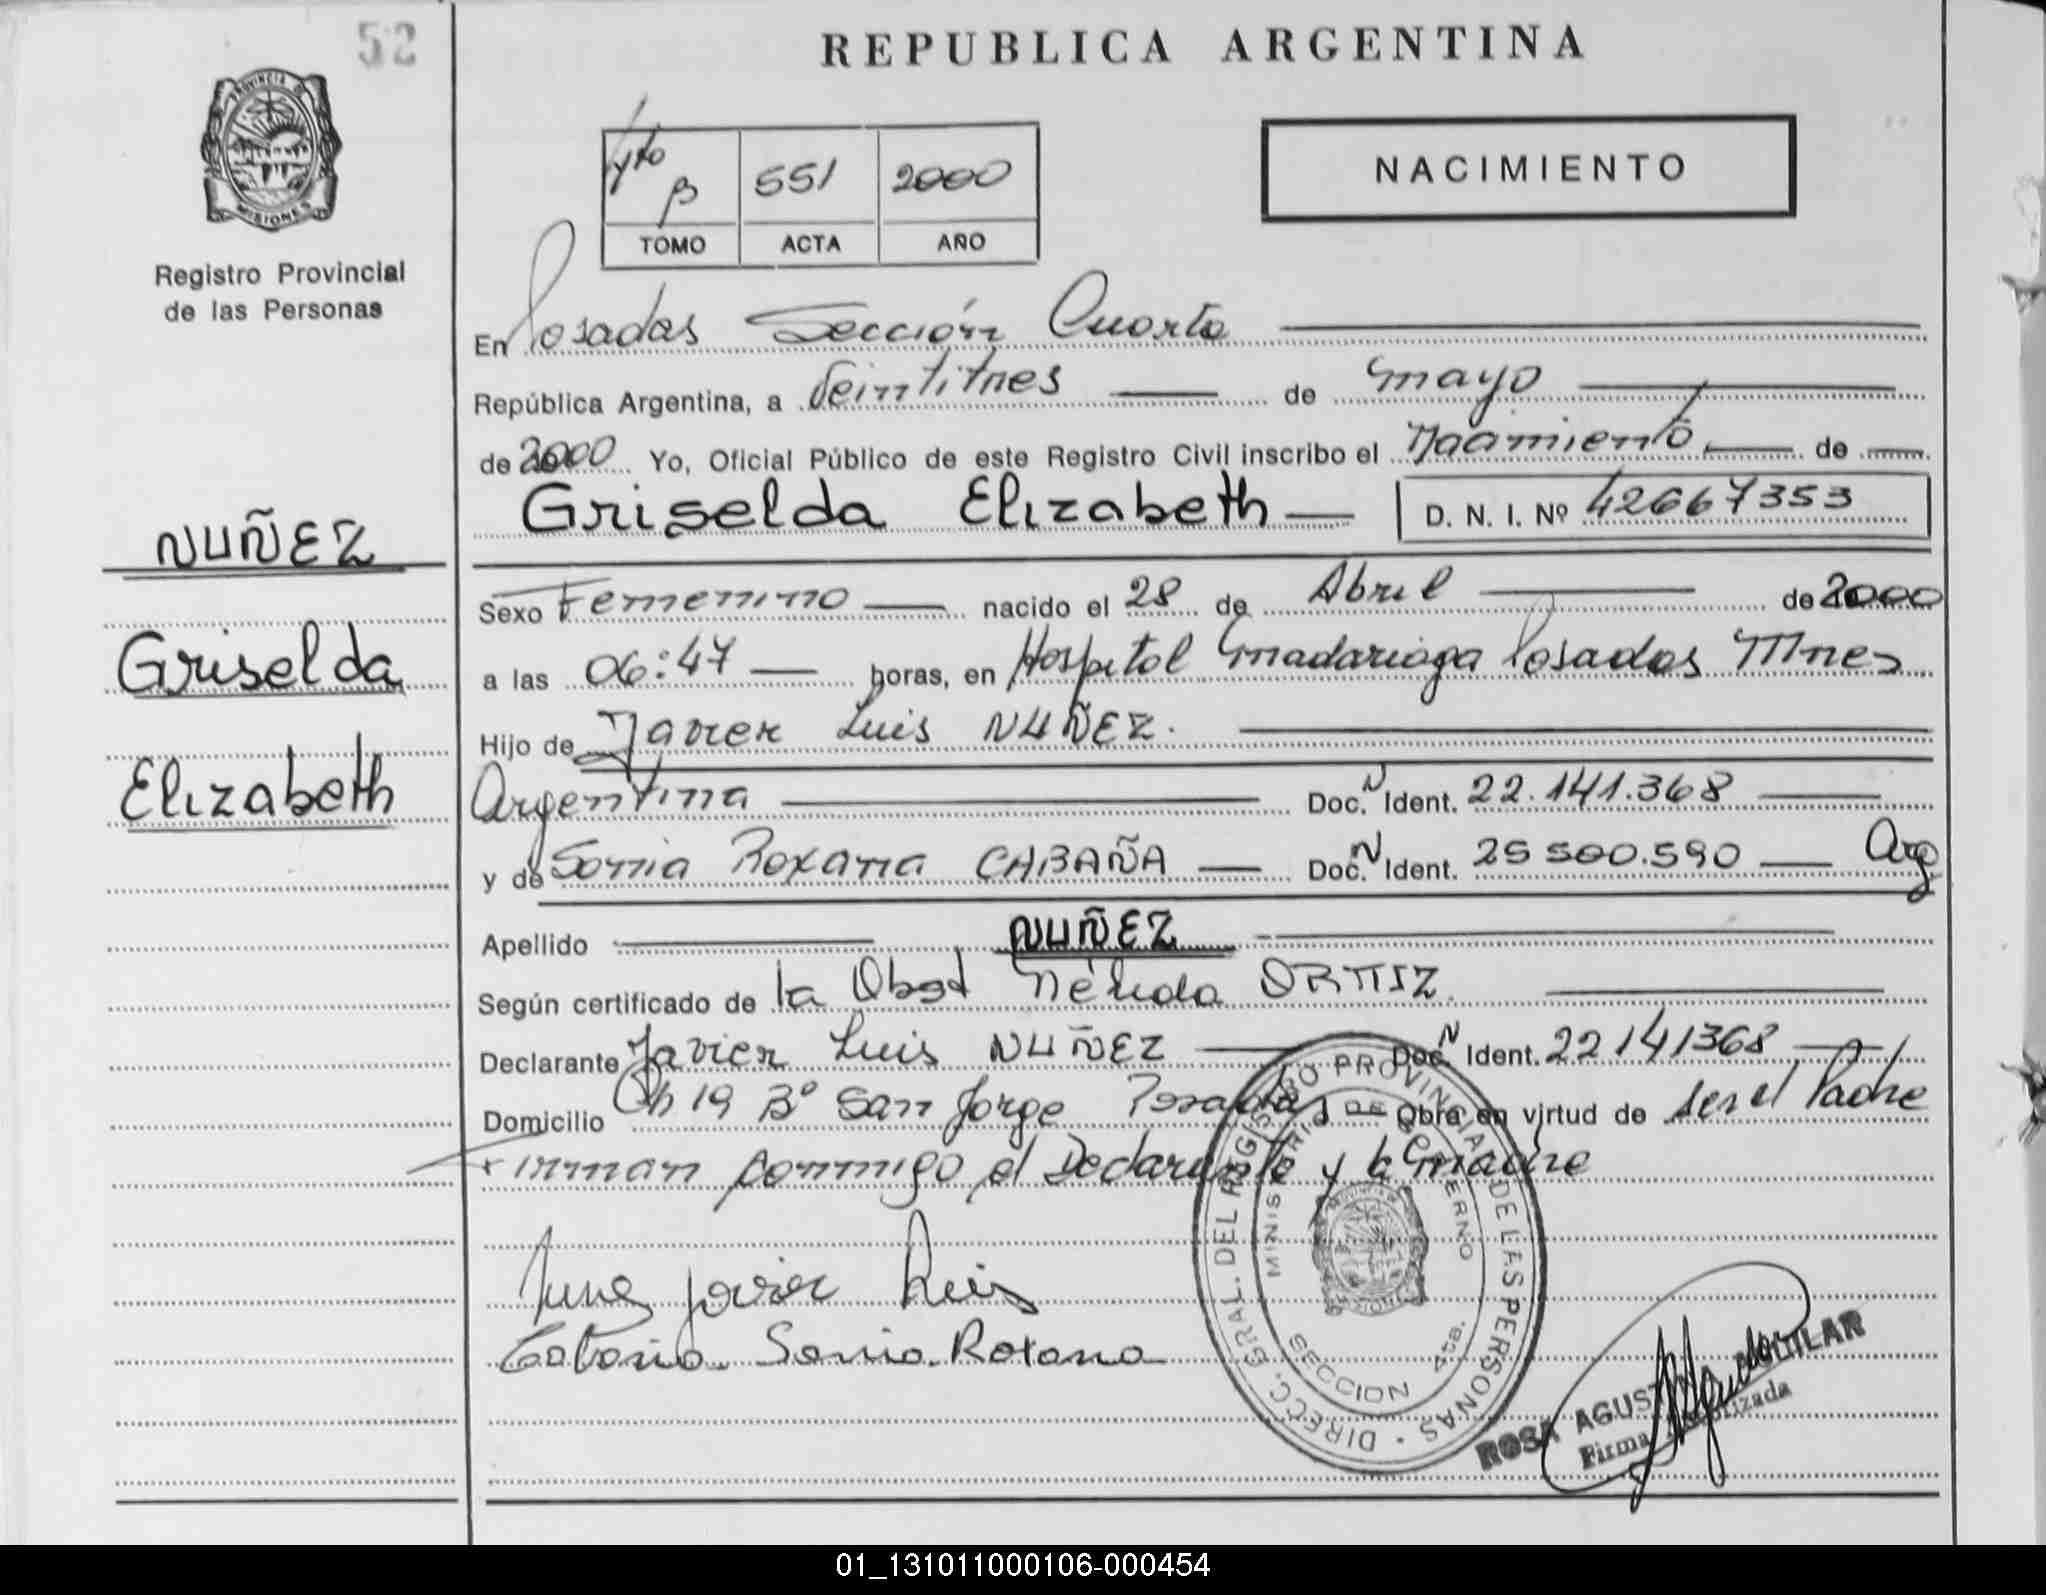 52
REPUBLICA ARGENTINA
PROVINCIA DE MISIONES
Registro Provincial
de las Personas
551 2000
TOMO ACTA AÑO
NACIMIENTO
En Posadas Sección Cuarta
República Argentina, a Veintitres de mayo
de 2000 Yo, Oficial Público de este Registro Civil inscribo el Nacimiento de
Griselda Elizabeth D. N. I. Nº 42667353
NUÑEZ
Griselda
Elizabeth
Sexo Femenino nacido el 28 de Abril de 2000
a las 06:47 horas, en Hospital Madariaga Posadas Mnes
Hijo de Javier Luis NUÑEZ.
Argentina Doc. N Ident. 22.141.368
y de Sonia Roxana CABAÑA Doc. N Ident. 25 500.590 Arg
Apellido NUÑEZ
Según certificado de la Obst Nélida ORTIZ
Declarante Javier Luis NUÑEZ Doc. N Ident. 22141368
Domicilio Ch 19 Bº San Jorge Posadas Obra en virtud de ser el Padre
Firman conmigo el Declarante y la madre
Javier Luis
Cabaña Sonia Roxana
DIRECC. GRAL. DEL REGISTRO PROVINCIAL DE LAS PERSONAS
MINISTERIO DE GOBIERNO
SECCION 4ta.
ROSA AGUSTINA AGUILAR
Firma Autorizada
01_131011000106-000454